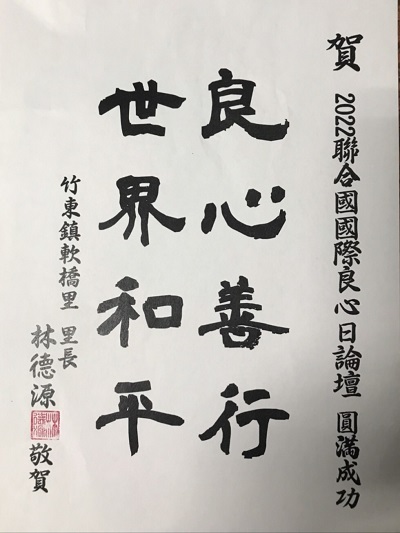 賀 2022聯合國國際良心日論壇 圓滿成功
良心善行
世界和平
竹東鎮軟橋里 里長 林德源 敬賀